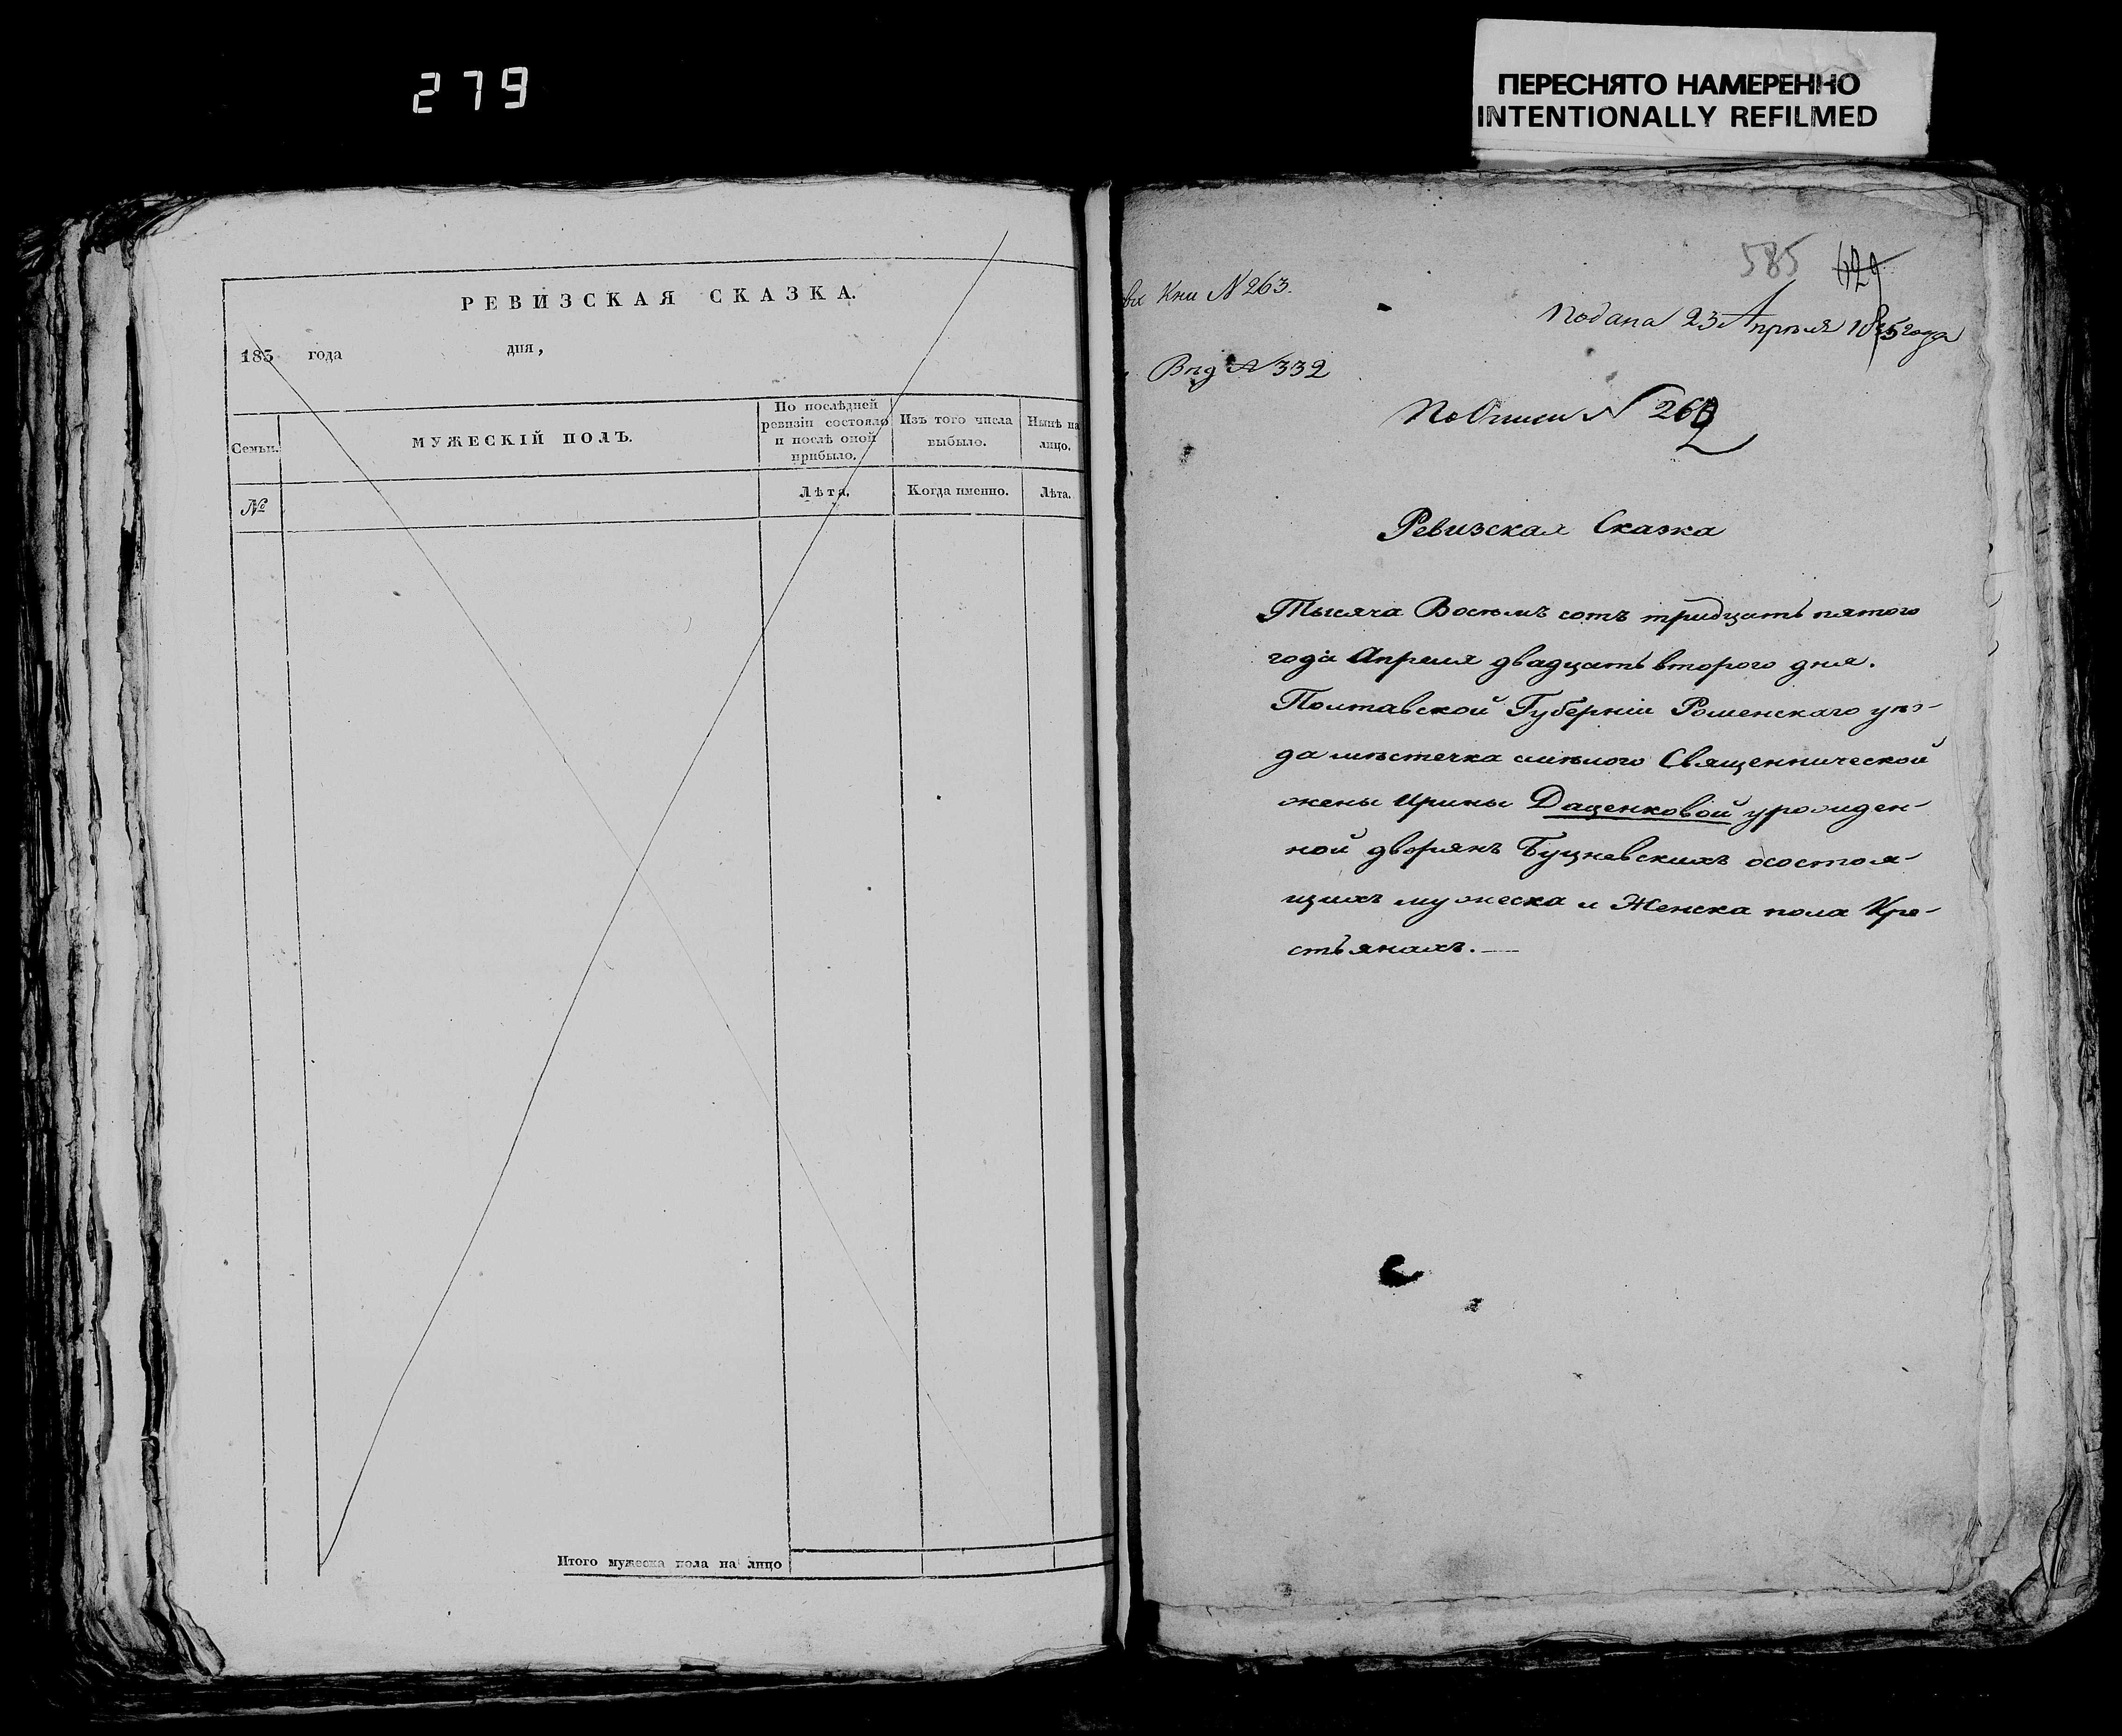 279
ПЕРЕСНЯТО НАМЕРЕННО
INTENTIONALLY REFILMED
РЕВИЗСКАЯ СКАЗКА.
183 года дня,
Семьи.
МУЖЕСКІЙ ПОЛЪ.
По послѣдней
ревизіи состояло
и послѣ оной
прибыло.
Изъ того числа
выбыло.
Нынѣ на
лицо.
№
Лѣта.
Когда именно.
Лѣта.
Итого мужеска пола на лицо
585 429
Кни N 263.
Подана 23 Апрѣля 1835 года
N 332
По Описи N 262
Ревизская Сказка
Тысяча Восемъ сотъ тридцать пятого
года Апреля двадцать второго дня.
Полтавской Губерніи Роменскаго уѣз-
да мѣстечка смѣлого Священнической
жены Ирины Даценковой урожден-
ной дворянъ Буцневскихъ осостоя-
щихъ мужеска и Женска пола Кре-
стьянахъ.